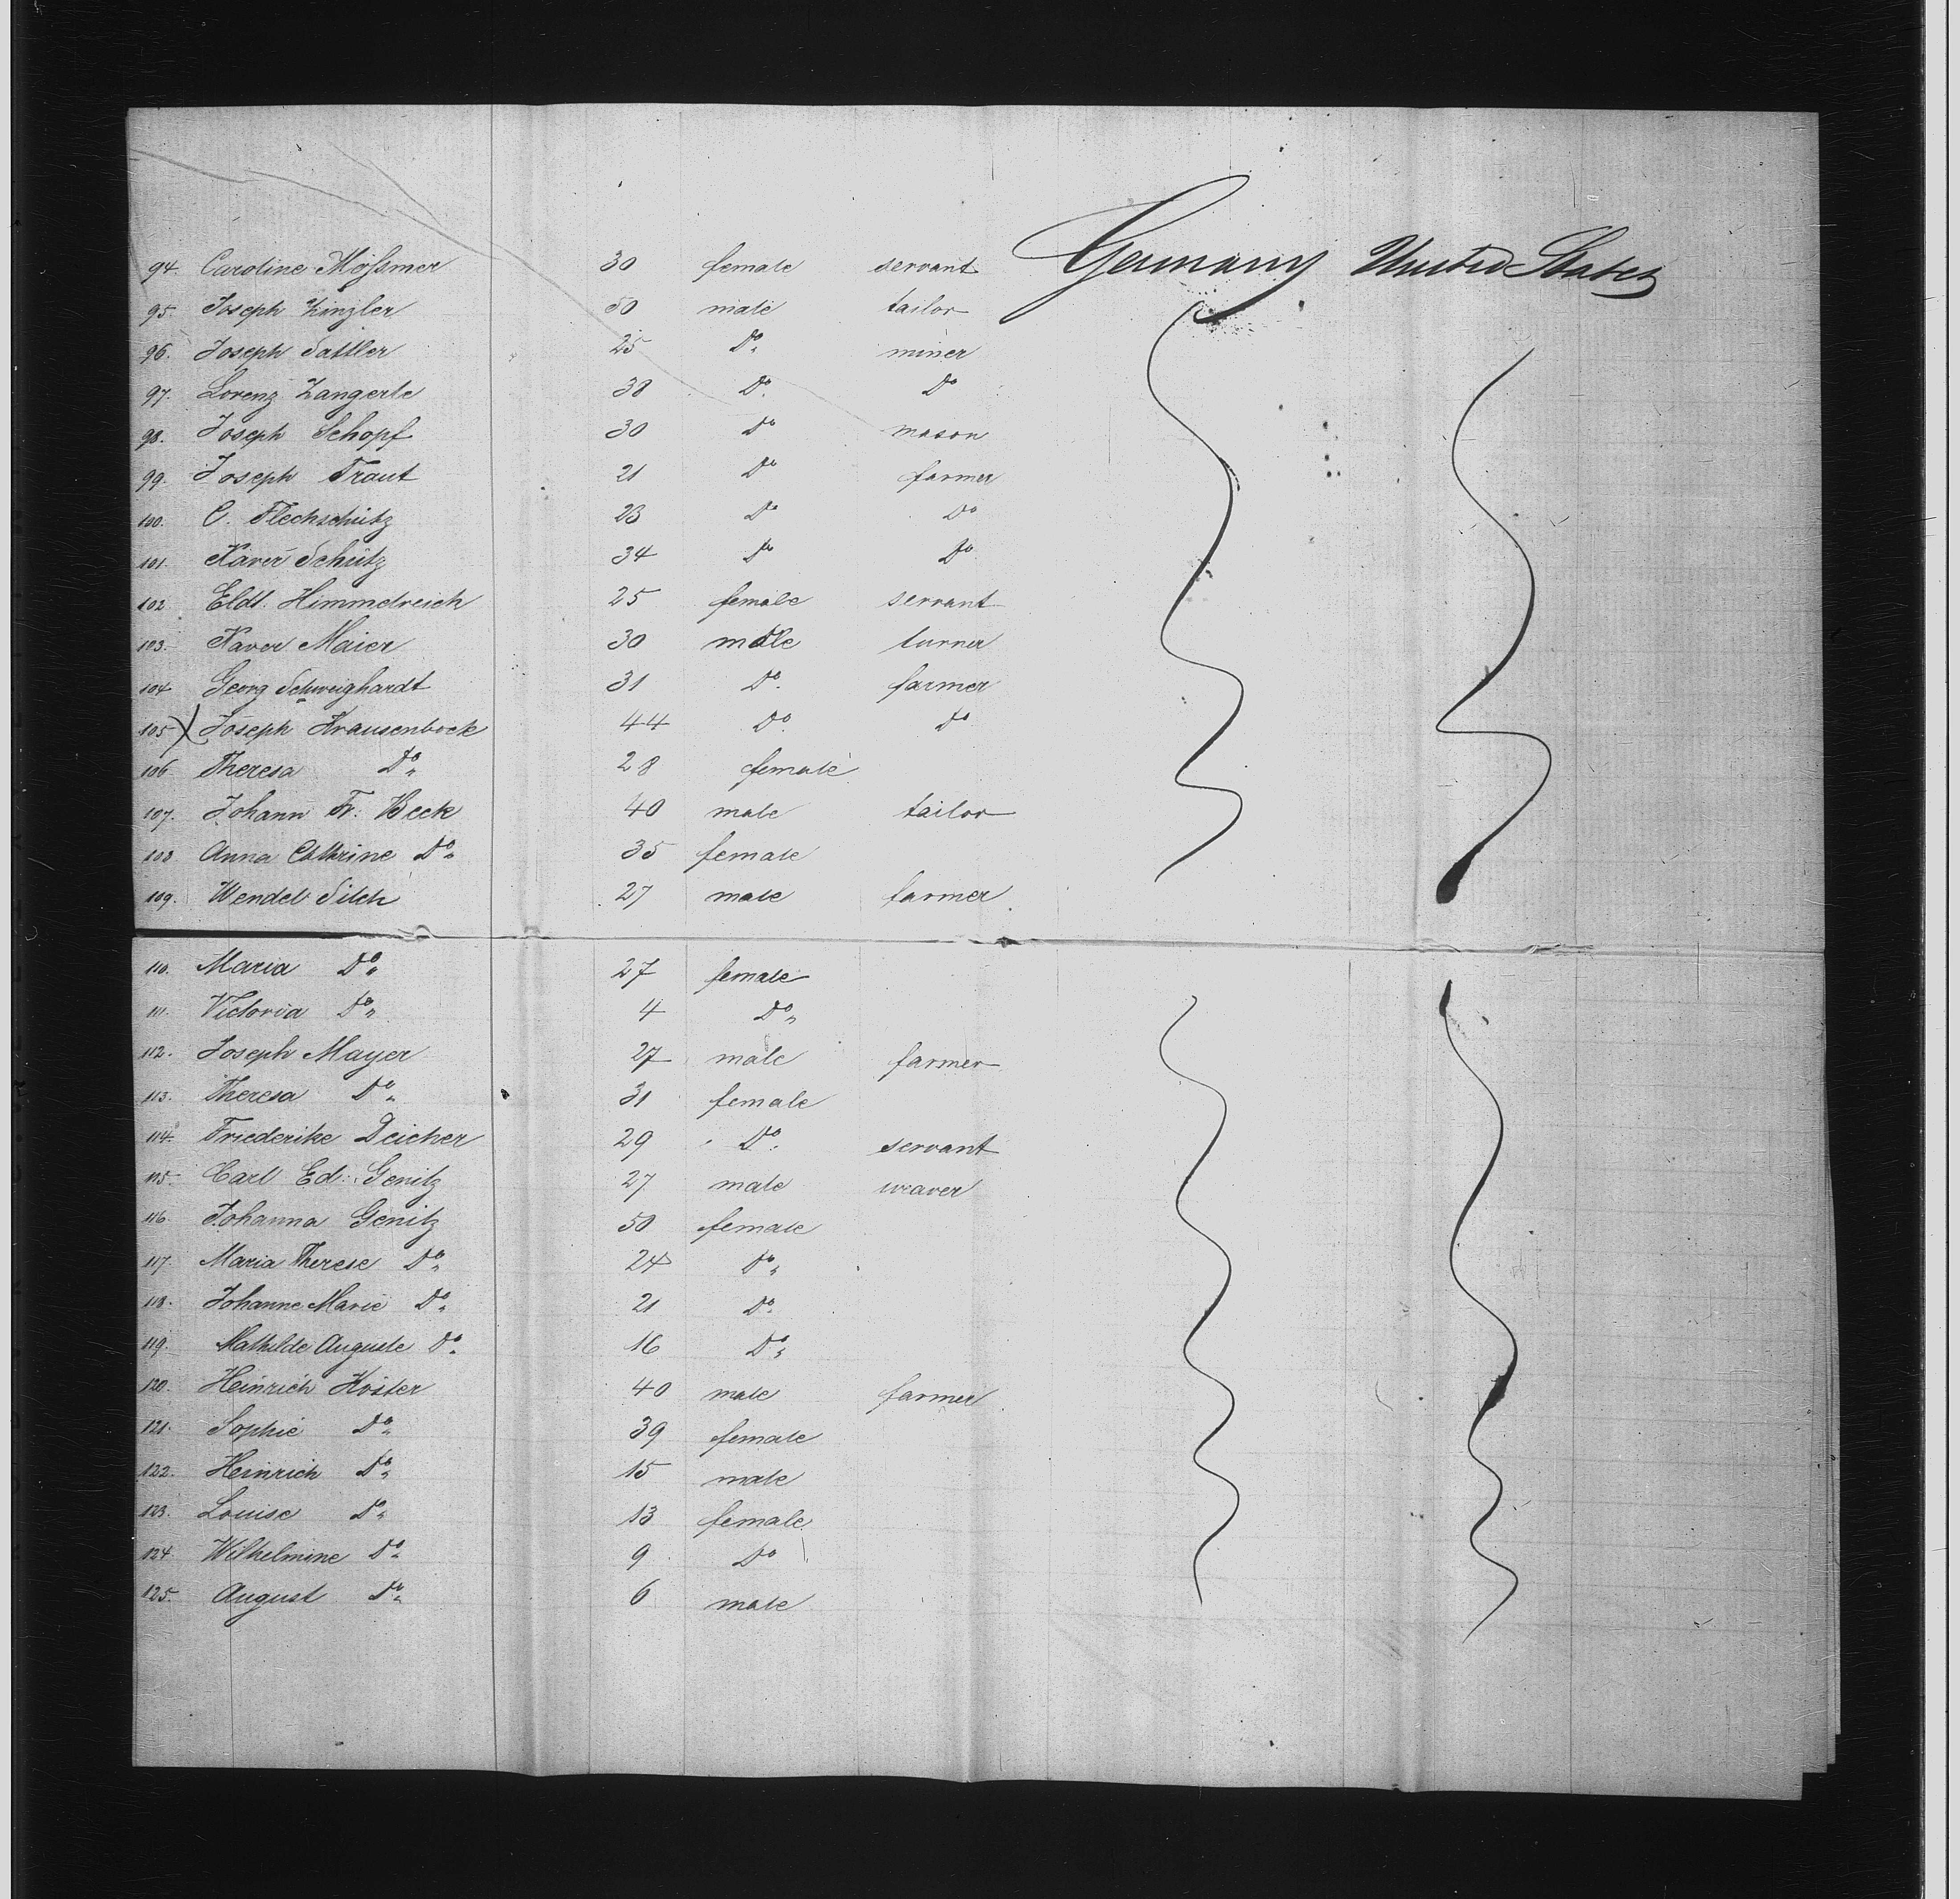 94. Caroline Mößmer 30 female servant Germany United States
95. Joseph Zinzler 50 male tailor
96. Joseph Sattler 25 Do. miner
97. Lorenz Zangerle 38 Do. Do
98. Joseph Schopf 30 Do mason
99. Joseph Traut 21 Do farmer
100. C. Flechschütz 23 Do Do
101. Xaver Schütz 34 Do Do
102 Eldt. Himmelreich 25 female servant
103. Xaver Maier 30 male turner
104 Georg Schweighardt 31 Do. farmer
105 X Joseph Krausenbock 44 Do. Do
106 Theresa Do 28 female
107. Johann Fr. Beck 40 male tailor
108 Anna Cathrine Do 35 female
109. Wendel Silch 27 male farmer
110. Maria Do 27 female
111. Victoria Do 4 Do
112. Joseph Mayer 27 male farmer
113. Theresa Do 31 female
114. Friederike Deicher 29 Do. servant
115. Carl Ed. Genitz 27 male weaver
116. Johanna Genitz 50 female
117. Maria Therese Do 24 Do
118. Johanne Marie Do 21 Do.
119. Mathilde Auguste Do 16 Do
120. Heinrich Koster 40 male farmer
121. Sophie Do 39 female
122. Heinrich Do 15 male
123. Louise Do 13 female
124. Wilhelmine Do 9 Do
125. August Do 6 male